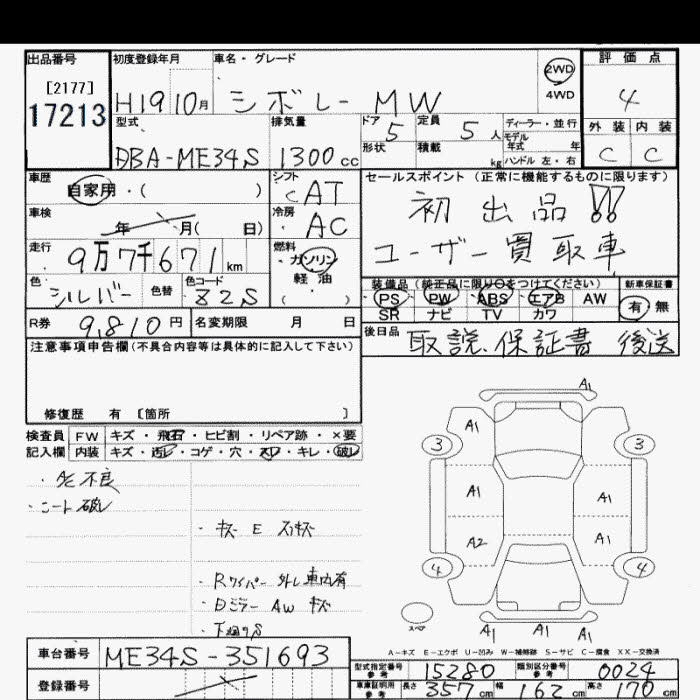 出品番号 初度登録年月 車名・グレード 評価点
[2177]
17213
H19 10月 シボレー MW 2WD 4WD 4
型式 排気量 ドア 5 定員 5人 ディーラー・並行 外装 内装
モデル年式 年
DBA-ME34S 1300cc 形状 積載 kg ハンドル 左・右 C C
車歴 自家用・( ) シフト CAT セールスポイント (正常に機能するものに限ります)
車検 年 月( 日) 冷房 AC 初出品!!
走行 9万7千671km 燃料 ガソリン 軽油 ( ) ユーザー買取車
色 シルバー 色替 色コード Z2S 装備品 (純正品に限り○をつけてください) 新車保証書
PS PW ABS エアB AW 有・無
SR ナビ TV カワ
R券 9,810円 名変期限 月 日 後日品 取説、保証書 後送
注意事項申告欄(不具合内容等は具体的に記入して下さい)
修復歴 有 [箇所 ]
検査員 FW キズ・飛石・ヒビ割・リペア跡・×要
記入欄 内装 キズ・汚レ・コゲ・穴・スレ・キレ・破レ
A1
A1
3 3
A1 A1
A2 A1
4 4
・キズ E スリキズ
・Rワイパー外し車内有
・Dミラー AW キズ
スペア
A1 A1 A1
A-キズ E-エクボ U-凹み W-補修跡 S-サビ C-腐食 XX-交換済
車台番号 ME34S-351693
型式指定番号 15280 類別区分番号 0024
登録番号
車庫証明用参考 長さ 357cm 幅 162cm 高さ 170cm